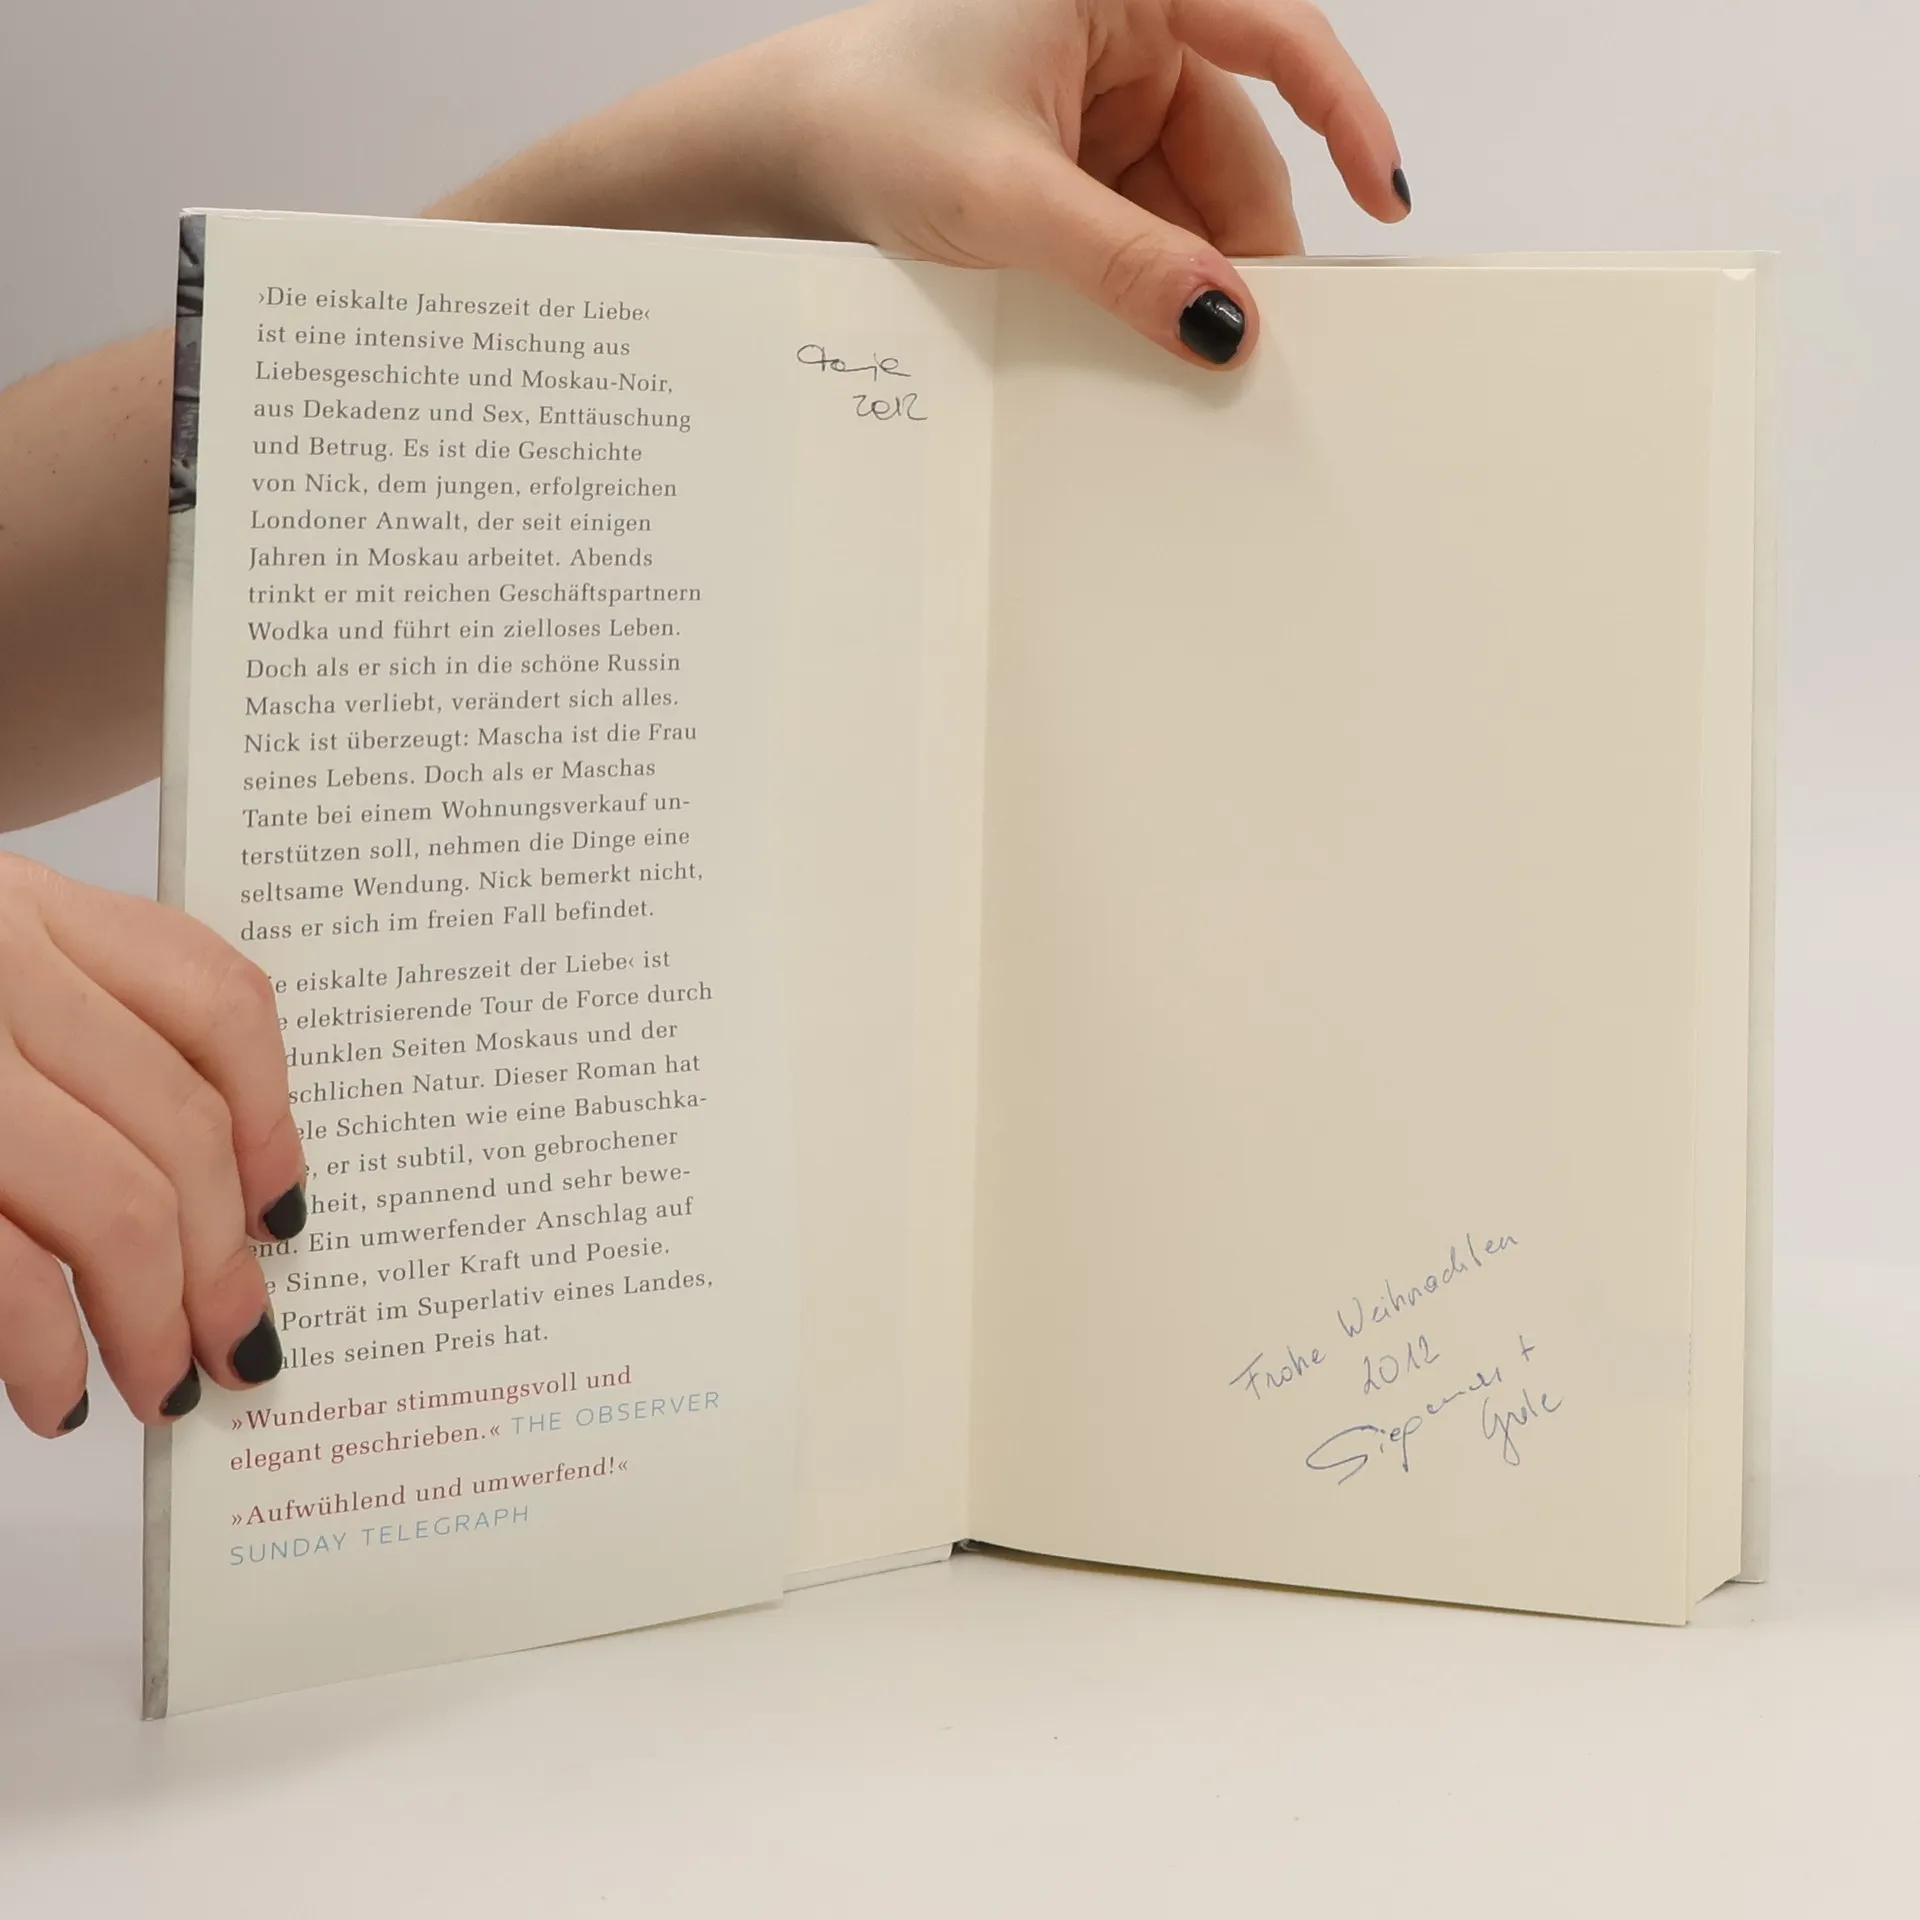 ›Die eiskalte Jahreszeit der Liebe‹
ist eine intensive Mischung aus
Liebesgeschichte und Moskau-Noir,
aus Dekadenz und Sex, Enttäuschung
und Betrug. Es ist die Geschichte
von Nick, dem jungen, erfolgreichen
Londoner Anwalt, der seit einigen
Jahren in Moskau arbeitet. Abends
trinkt er mit reichen Geschäftspartnern
Wodka und führt ein zielloses Leben.
Doch als er sich in die schöne Russin
Mascha verliebt, verändert sich alles.
Nick ist überzeugt: Mascha ist die Frau
seines Lebens. Doch als er Maschas
Tante bei einem Wohnungsverkauf un-
terstützen soll, nehmen die Dinge eine
seltsame Wendung. Nick bemerkt nicht,
dass er sich im freien Fall befindet.
e eiskalte Jahreszeit der Liebe‹ ist
e elektrisierende Tour de Force durch
dunklen Seiten Moskaus und der
schlichen Natur. Dieser Roman hat
ele Schichten wie eine Babuschka-
, er ist subtil, von gebrochener
heit, spannend und sehr bewe-
end. Ein umwerfender Anschlag auf
e Sinne, voller Kraft und Poesie.
Porträt im Superlativ eines Landes,
alles seinen Preis hat.
»Wunderbar stimmungsvoll und
elegant geschrieben.« THE OBSERVER
»Aufwühlend und umwerfend!«
SUNDAY TELEGRAPH
2012
Frohe Weihnachten
2012
+